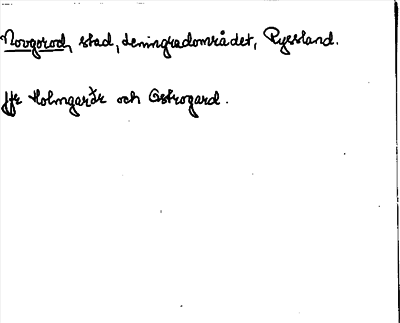 Novgorod, stad, Leningradområdet, Ryssland.
Jfr Holmgarðr och Ostrogard.